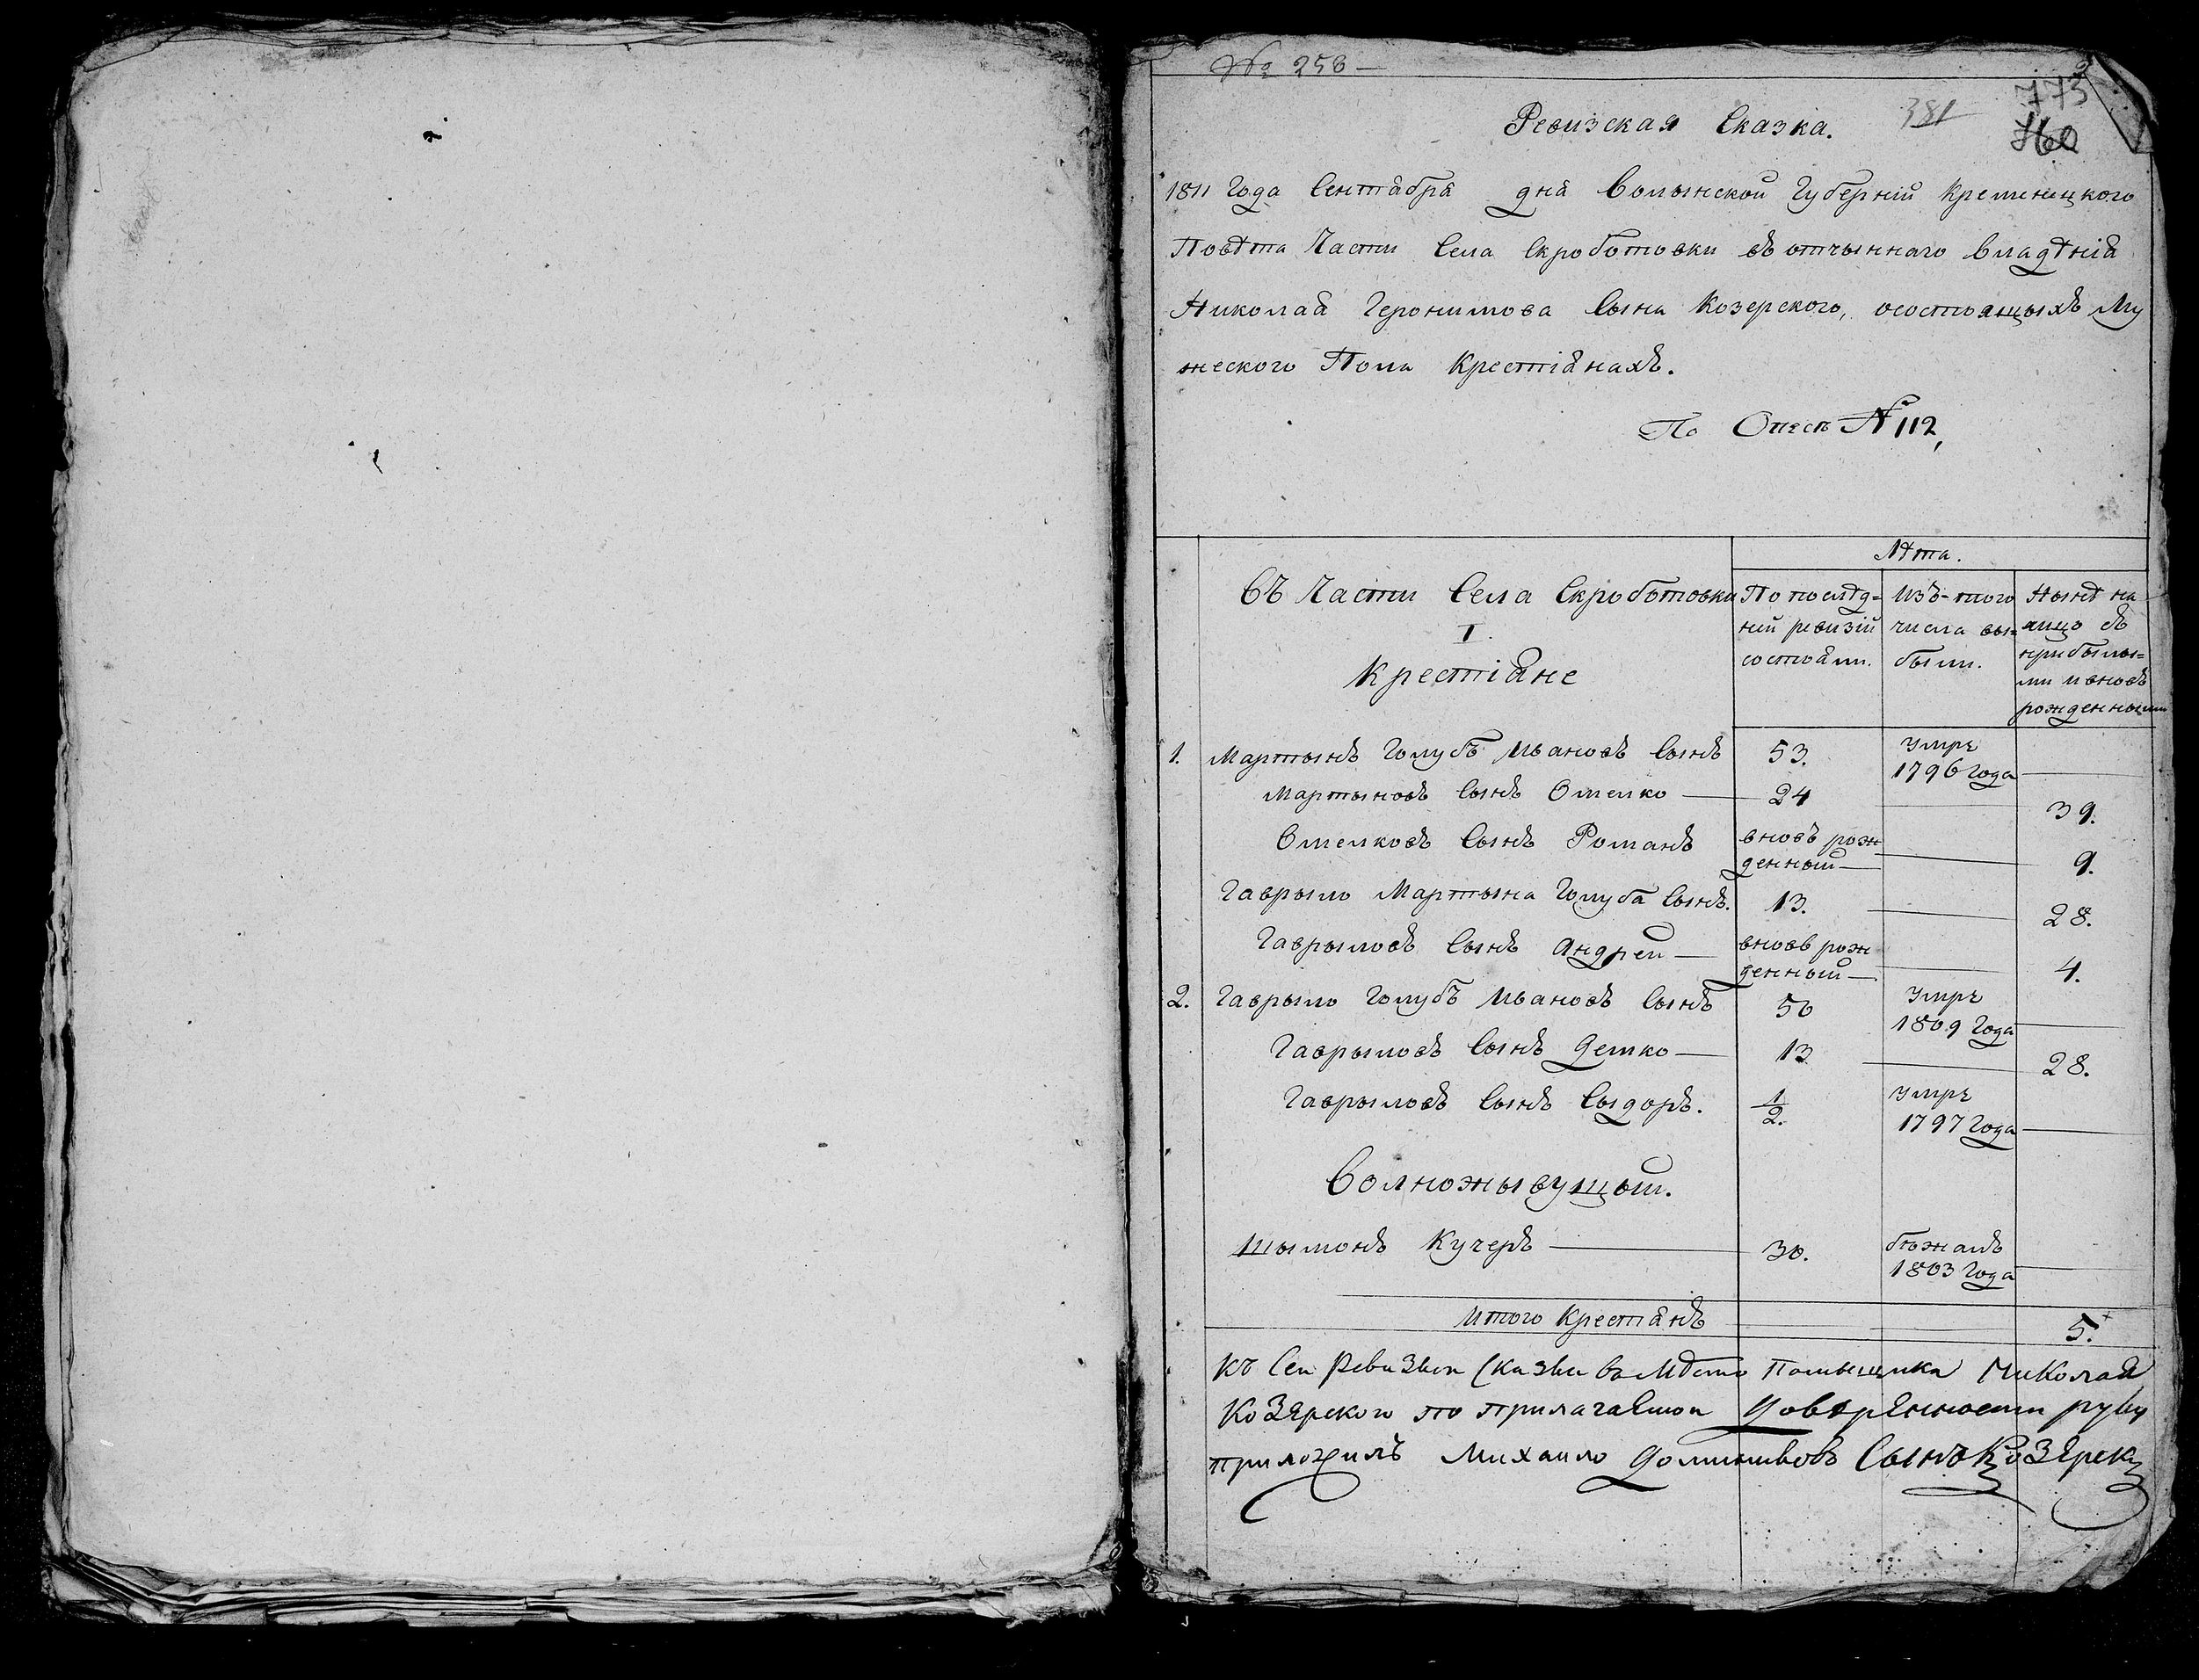 № 258
381
773
760
Ревизская Сказка.
1811 Года Сентября дня Волынской Губернии Кременецкого
Повѣта Части Села Скроботовки въ отчынного Владѣнія
Николая Геронимова Сына Козерского, осостоящыхъ Му
жеского Пола Крестіянахъ.
По Описѣ № 112,
Лѣта.
Въ Части Села Скроботовки
I.
Крестіяне
По послѣд=
ней ревизіи
состояли.
Изъ-того
числа вы=
были.
Нынѣ на
лицо съ
прибылы=
ми и вновь
рожденными
1. Мартынъ Голубъ Ивановъ Сынъ 53. Умре 1796 Года —
Мартыновъ Сынъ Омелко — 24 — 39.
Омелковъ Сынъ Романъ вновь рож
денный — — 9.
Гаврыло Мартына Голуба Сынъ. 13. — 28.
Гаврыловъ Сынъ Андрей — вновь рож
денный — — 4.
2. Гаврыло Голубъ Ивановъ Сынъ 50 Умре 1809 Года —
Гаврыловъ Сынъ Демко — 13 — 28.
Гаврыловъ Сынъ Сыдоръ. 1/2. Умре 1797 Года —
Волножывущый.
Шымонъ Кучеръ — 30. бѣжалъ 1803 Года —
Итого Крестіянъ — — 5.
Къ Сеи Ревизкои Сказки вмѣсто Помыщика Николая
Козерского по прилагаемои доверенности руку
приложилъ Михаило Сынъ Козерски